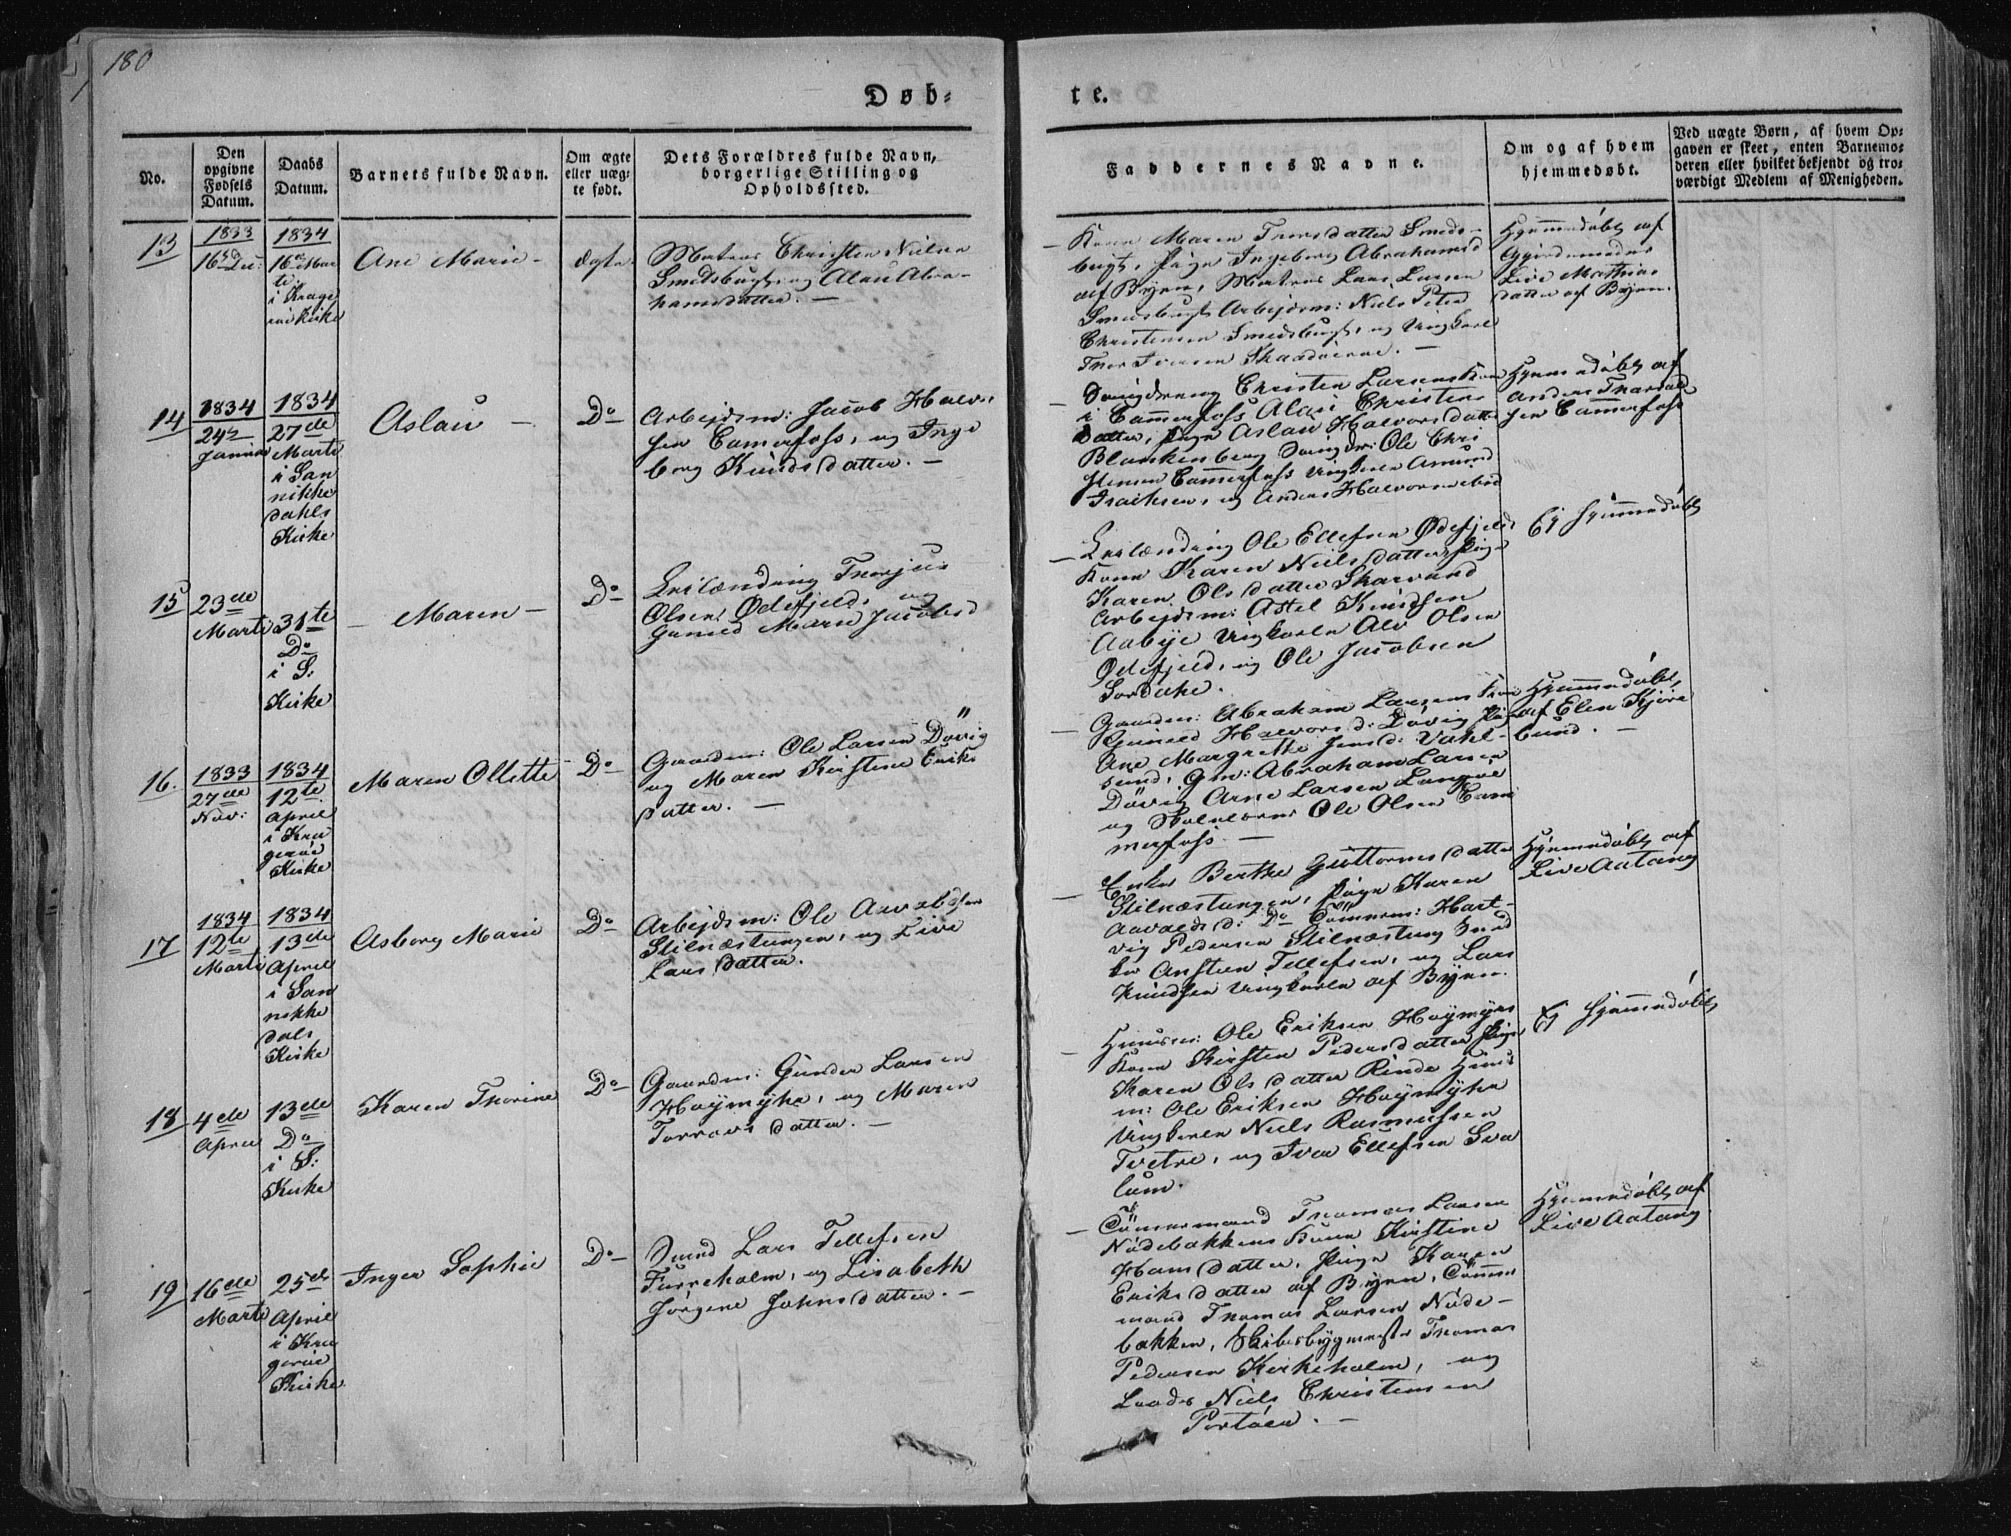 180
Døb-
te.
No.
Den opgivne Fødsels Datum.
Daabs Datum.
Barnets fulde Navn.
Om ægte eller uægte født.
Dets Forældres fulde Navn, borgerlige Stilling og Opholdssted.
Faddernes Navne.
Om og af hvem hjemmedøbt.
Ved uægte Børn, af hvem Opgaven er skeet, enten Barnemoderen eller hvilket bekjendt og troværdigt Medlem af Menigheden.
13
1833
1834
Ane Marie -
Ægte
Matros Christen Nielsen
Smedsbugt, og
hamsdatter. -
Kone Maren
bugt, Pige Ingeborg Abrahamsd
af Byen, Matros Lars Larsen
Smedsbugt Arbejdsm: Niels Peter
Christensen Smedsbugt, og Ungkarl
Hjemmedøbt af
Live Mathias
datter af Byen.
14
1834
24de
Januar
1834
27de
Marti
i San
nikke
dahls
Kirke
Aslau -
Do
Arbejdsm: Jacob Halvor
sen Tamerfoss, og Inge
borg Knudsdatter. -
Christen Larsens Kone
i Tammerfoss Christens
datter, Pige Aslau Halvorsdatter
Blankenberg Ole Chri
stensen Tammerfoss Ungkarl Amund
Isaksen, og Anders Halvorsen
Hjemmedøbt af
Anders
sen Tamerfoss
15
23de
Marti
31te
Do
i S:
Kirke
- Maren -
Do
Leilænding Thorjus
Olsen Ødefjeld, og
Gunild Marie Jacobsd
Leilænding Ole Ellefsen Ødefjelds
Kone Karen Nielsdatter, Pige
Karen Olsdatter Skarvand
Arbejdsm: Axel Knudsen
Aabye Ungkarle Alv Olsen
Ødefjeld, og Ole Jacobsen
Sordahl.
Ej hjemmedøbt
16.
1833
27de
Nov:
1834
12te
April
i Kra
gerøe
Kirke
Maren Ollette
Do
Gaardm: Ole Larsen Døvig
og Maren Kirstine Eriks
datter. -
Gaardm: Abraham Larsens Kone
Gunild Halvorsd: Døvig Pige
Ane Margrethe Jensd: Vahl-
sund, Gm: Abraham Larsen
Døvig Arne Larsen
og Ole Olsen Tam
merfoss -
Hjemmedøbt
af Elen Kjøre
bund. -
17
1834
12te
Marti
1834
13de
April
i San
nikke
dals
Kirke
Asborg Marie
Do
Arbejdsm: Ole Aavaldsen
Stilnæstangen, og Live
Larsdatter.
Enke Berthe Guttormsdatter
Stilnæstangen, Pige Karen
Aavaldsd: Do Tømmerm: Hart-
vig Pedersen Stilnæstang Smed
Tellefsen, og Lars
Knudsen Ungkarle af Byen.
Hjemmedøbt af
Live Aatang
18
4de
April
13de
Do
i S:
Kirke
Karen Thorine
Do
Gaardm: Gunder Larsen
Høymyhr, og Maren
datter. -
Huusm: Ole Eriksen Høymyrs
Kone Kirsten Pedersdatter Pige
Karen Olsdatter Rinde Huus
m: Ole Eriksen Høymyhr
Ungkarle Niels Rasmussen
Tvetne, og Iver Ellefsen Sva
lum.
Ej hjemmedøbt
19
16de
Marti
25de
April
i Kra
gerøe
Kirke
Inger Sophie
Do
Smed Lars Tellefsen
Furreholm, og Lisabeth
Jørgene Johnsdatter. -
Tømmermand Thomas Larsen
Nødebakkens Kone Kirstine
Hansdatter, Pige Karen
Eriksdatter af Byen, Tømmer
mand Thomas Larsen Nøde-
bakken, Skibsbygmester Thomas
Pedersen Kirkeholm, og
Niels Christensen
Portøen. -
Hjemmedøbt af
Live Aatang